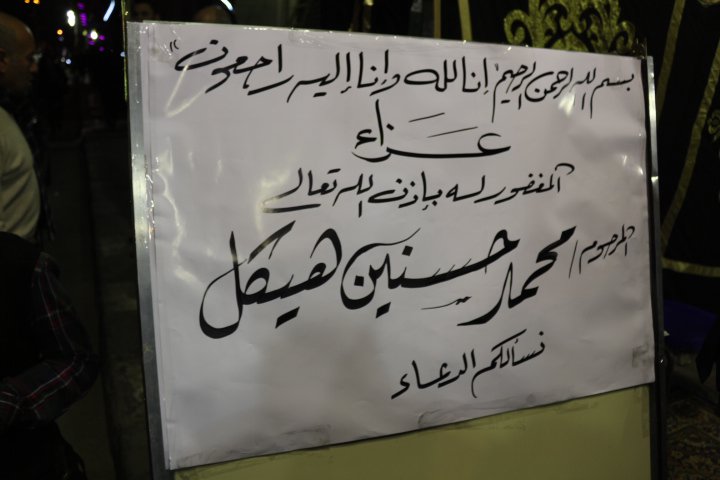 بسم الله الرحمن الرحيم "إنا لله وإنا إليه راجعون"
عزاء
المغفور له بإذن الله تعالى
المرحوم / محمد حسنين هيكل
نسألكم الدعاء